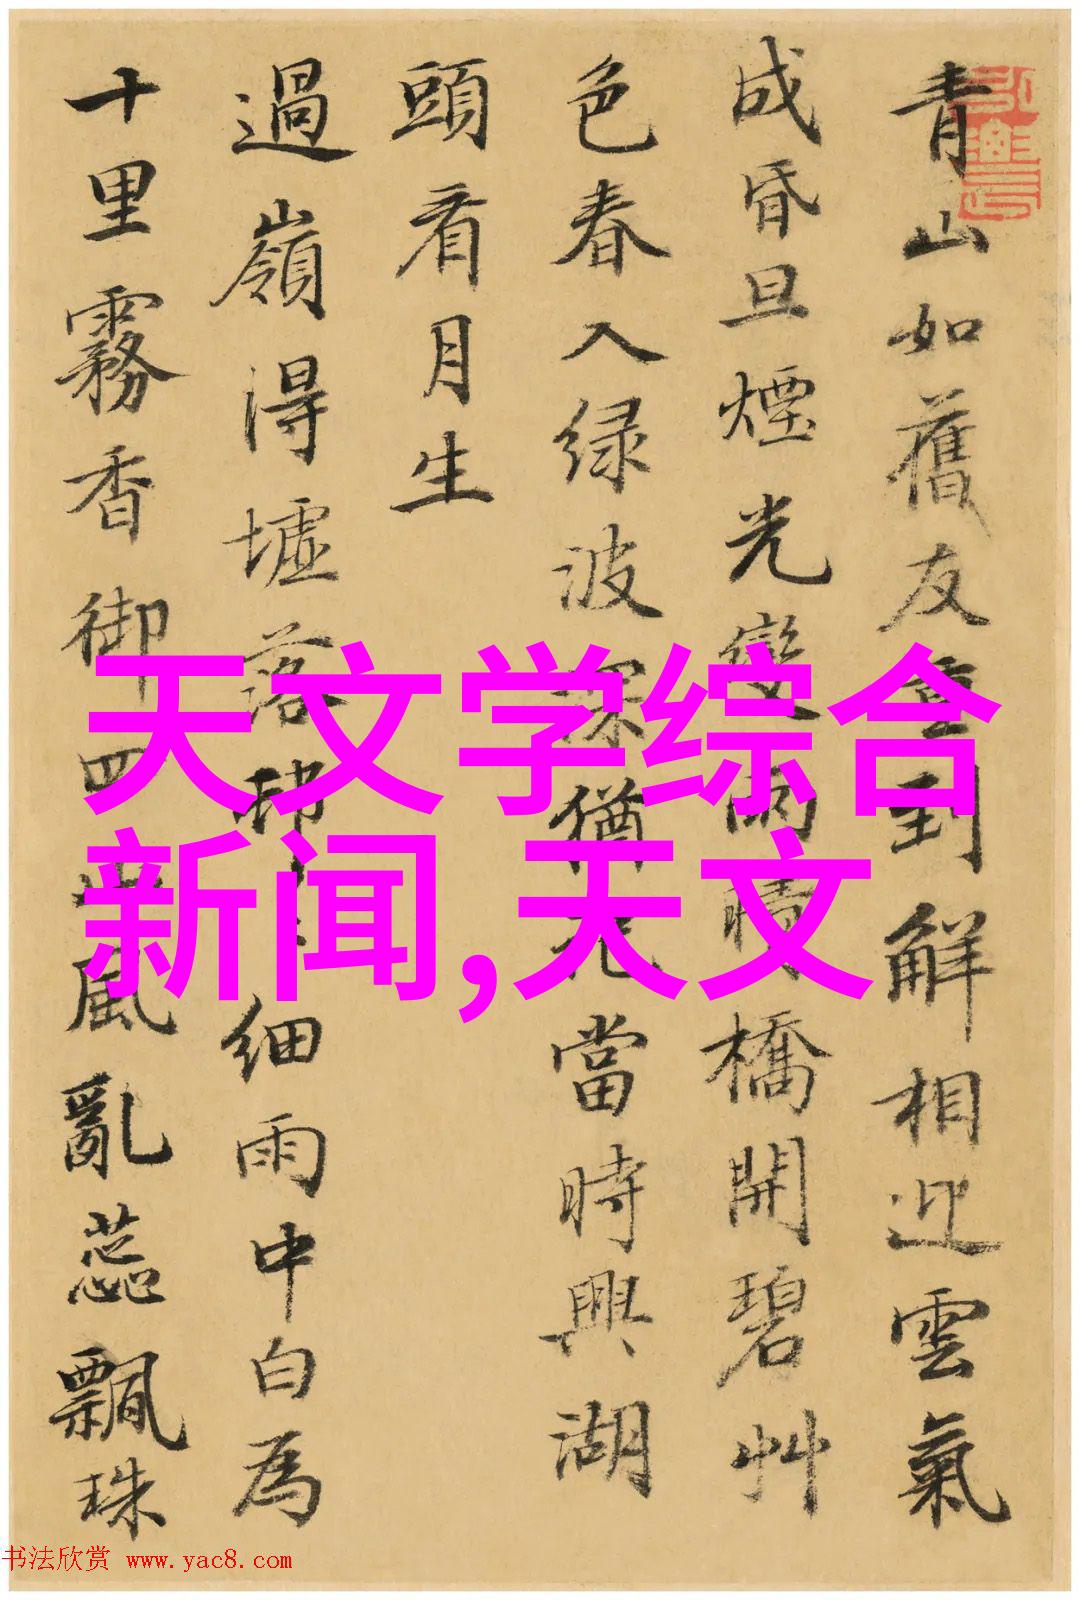 青山如舊友重到解相迎雲氣
成昏旦煙光變雨晴橋開碧艸
色春入绿波深猶
當時興湖
頭看月生
過嶺得墟落
細雨中白為
十里霧香御四
風亂蕊飄珠
天文学综合
新闻,天文
书法欣赏 www.yac8.com